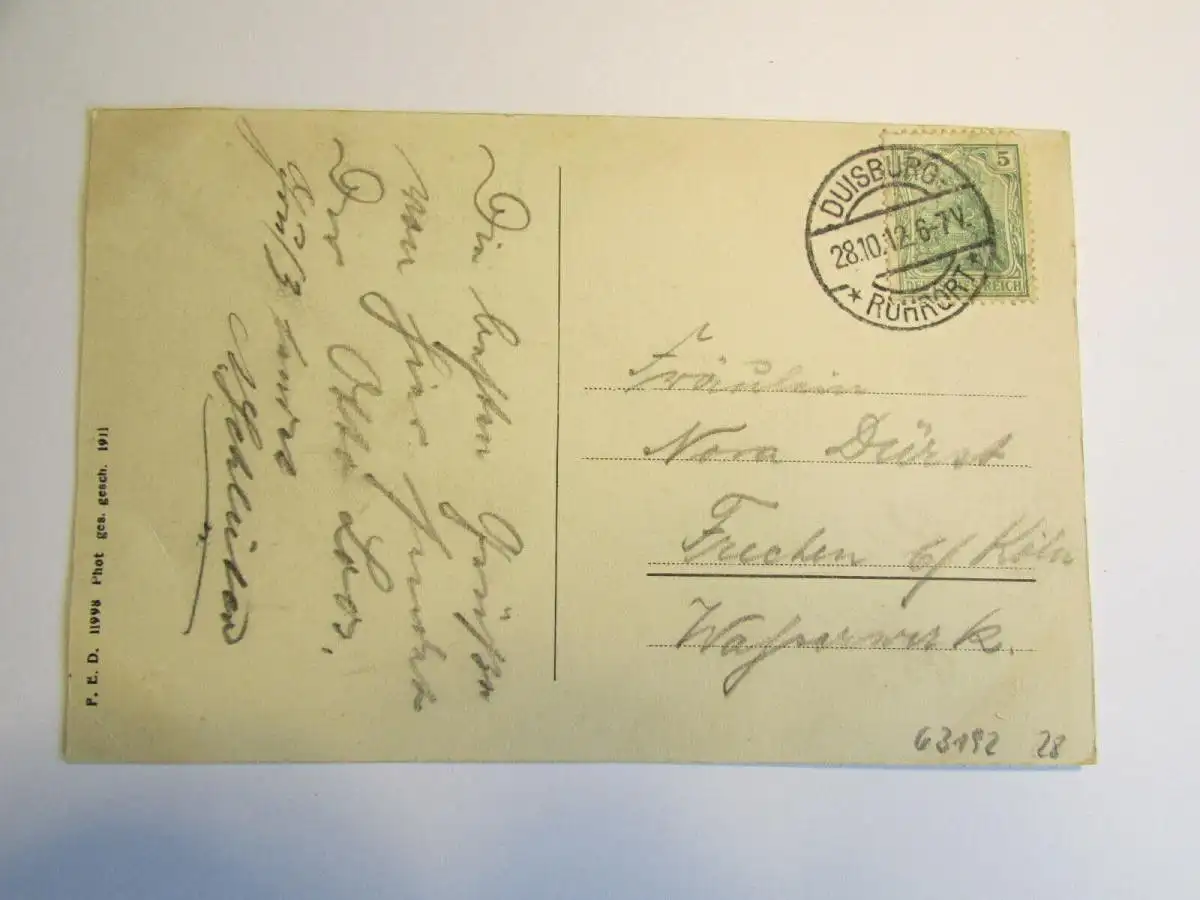 Die besten Grüßen
von hier sendet
Otto Loos,
P. E. D. 11998 Phot ges. gesch. 1911
5
DUISBURG-
28.10.12.6-7V.
* RUHRORT *
REICH
Fräulein
Nora Dürst
Frechen b/ Köln
Wasserwerk.
63192 28